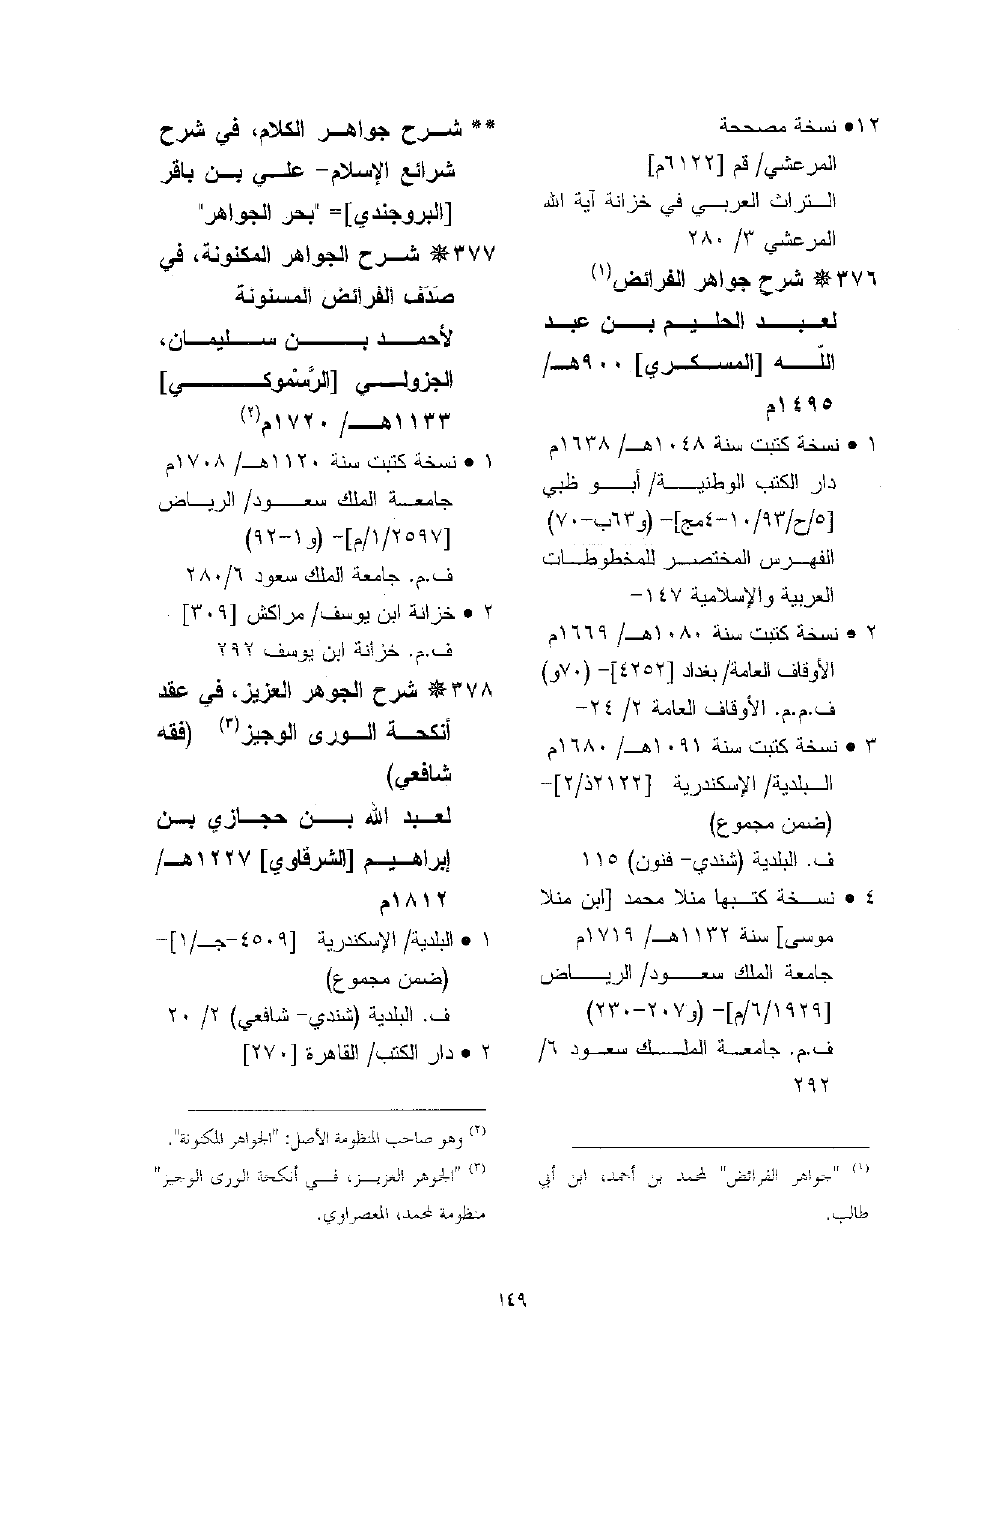 ١٢● نسخة مصححة
المرعشي/ قم [٦١٢٢م]
التراث العربي في خزانة آية الله
المرعشي ٣/ ٢٨٠
٣٧٦❋ شرح جواهر الفرائض(١)
لعبد الحليم بن عبد
اللّه [المسكري] ٩٠٠هـ/
١٤٩٥م
١ ● نسخة كتبت سنة ١٠٤٨هـ/ ١٦٣٨م
دار الكتب الوطنية/ أبو ظبي
[٥/ح/١٠/٩٣-٤مج]- (و٦٣ب-٧٠)
الفهرس المختصر للمخطوطات
العربية والإسلامية ١٤٧-
٢ ● نسخة كتبت سنة ١٠٨٠هـ/ ١٦٦٩م
الأوقاف العامة/ بغداد [٤٢٥٢]- (٧٠و)
ف.م.م. الأوقاف العامة ٢/ ٢٤-
٣ ● نسخة كتبت سنة ١٠٩١هـ/ ١٦٨٠م
البلدية/ الإسكندرية [٢١٢٢ذ/٢]-
(ضمن مجموع)
ف. البلدية (شندي- فنون) ١١٥
٤ ● نسخة كتبها منلا محمد [ابن منلا
موسى] سنة ١١٣٢هـ/ ١٧١٩م
جامعة الملك سعود/ الرياض
[٦/١٩٢٩/م]- (و٢٠٧-٢٣٠)
ف.م. جامعة الملك سعود ٦/
٢٩٢
(١) "جواهر الفرائض" لمحمد بن أحمد، ابن أبي
طالب.
** شرح جواهر الكلام، في شرح
شرائع الإسلام- علي بن باقر
[البروجندي]= "بحر الجواهر"
٣٧٧❋ شرح الجواهر المكنونة، في
صَدَف الفرائض المسنونة
لأحمد بن سليمان،
الجزولي [الرَّسْموكي]
١١٣٣هـ/ ١٧٢٠م(٢)
١ ● نسخة كتبت سنة ١١٢٠هـ/ ١٧٠٨م
جامعة الملك سعود/ الرياض
[١/٢٥٩٧/م]- (و١-٩٢)
ف.م. جامعة الملك سعود ٢٨٠/٦
٢ ● خزانة ابن يوسف/ مراكش [٣٠٩]
ف.م. خزانة ابن يوسف ٢٩٢
٣٧٨❋ شرح الجوهر العزيز، في عقد
أنكحة الورى الوجيز(٣) (فقه
شافعي)
لعبد الله بن حجازي بن
إبراهيم [الشرقاوي] ١٢٢٧هـ/
١٨١٢م
١ ● البلدية/ الإسكندرية [٤٥٠٩-جـ/١]-
(ضمن مجموع)
ف. البلدية (شندي- شافعي) ٢/ ٢٠
٢ ● دار الكتب/ القاهرة [٢٧٠]
(٢) وهو صاحب المنظومة الأصل: "الجواهر المكنونة".
(٣) "الجوهر العزيز، في أنكحة الورى الوجيز"
منظومة لمحمد، المعصراوي.
١٤٩